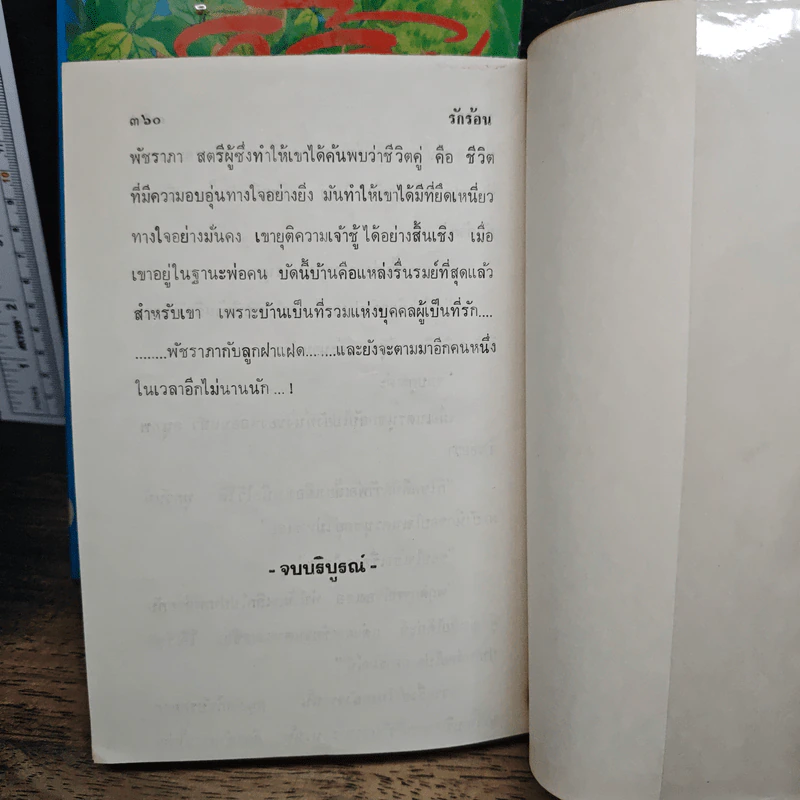 ๓๖๐ รักร้อน
พัชราภา สตรีผู้ซึ่งทำให้เขาได้ค้นพบว่าชีวิตคู่ คือ ชีวิต
ที่มีความอบอุ่นทางใจอย่างยิ่ง มันทำให้เขาได้มีที่ยึดเหนี่ยว
ทางใจอย่างมั่นคง เขายุติความเจ้าชู้ได้อย่างสิ้นเชิง เมื่อ
เขาอยู่ในฐานะพ่อคน บัดนี้บ้านคือแหล่งรื่นรมย์ที่สุดแล้ว
สำหรับเขา เพราะบ้านเป็นที่รวมแห่งบุคคลผู้เป็นที่รัก....
........พัชราภากับลูกฝาแฝด........และยังจะตามมาอีกคนหนึ่ง
ในเวลาอีกไม่นานนัก ...!
- จบบริบูรณ์ -